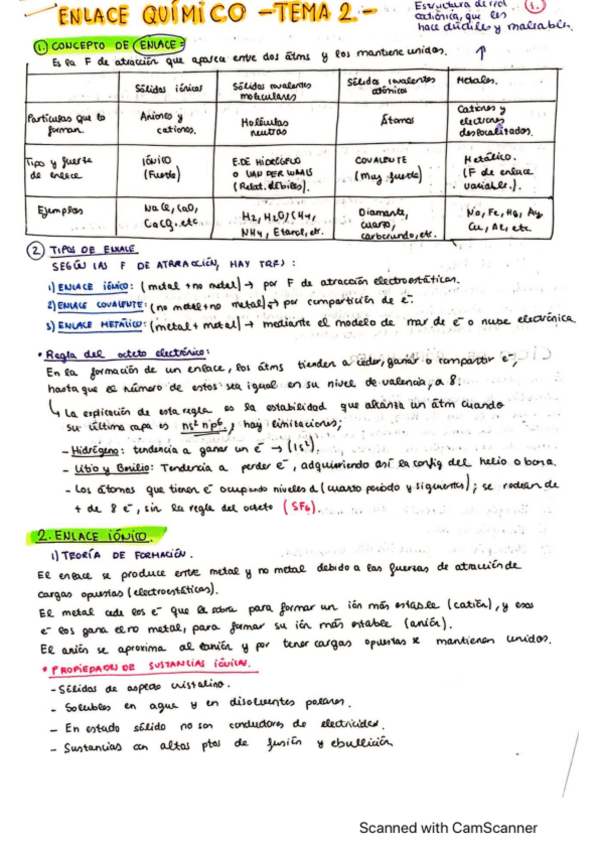 ENLACE QUÍMICO - TEMA 2.-
Estructura de red
catiónica, que les
hace dúctiles y maleables.
1.
1. CONCEPTO DE ENLACE:
Es la F de atracción que aparece entre dos átms y los mantiene unidos.
Sólidos iónicos | Sólidos covalentes moleculares | Sólidos covalentes atómicos | Metales.
Partículas que lo forman | Aniones y cationes. | Moléculas neutras | Átomos | Cationes y electrones deslocalizados.
Tipo y fuerte de enlace | IÓNICO (Fuerte) | E.DE HIDRÓGENO O VAN DER WAALS (Relat. débiles). | COVALENTE (muy fuerte) | Metálico. (F de enlace variable.).
Ejemplos | NaCl, CaO, etc. | H2, H2O, CH4, NH4, Etanol, etc. | Diamante, cuarzo, carborundo, etc. | Na, Fe, Hg, Ag Cu, Al, etc
2. TIPOS DE ENLACE.
SEGÚN LAS F DE ATRRACCIÓN, HAY TRES:
1) ENLACE IÓNICO: (metal + no metal) → por F de atracción electroestáticas.
2) ENLACE COVALENTE: (no metal + no metal) → por compartición de e-.
3) ENLACE METÁLICO: (metal + metal) → mediante el modelo de mar de e- o nube electrónica
* Regla del octeto electrónico:
En la formación de un enlace, los átms tienden a ceder, ganar o compartir e-,
hasta que el número de estos sea igual en su nivel de valencia, a 8.
↳ La explicación de esta regla es la estabilidad que alcanza un átm cuando
su última capa es ns² np⁶, hay limitaciones;
- Hidrógeno: tendencia a ganar un e- → (1s²).
- Litio y Berilio: Tendencia a perder e-, adquiriendo así la config del helio o boro.
- Los átomos que tienen e- ocupando niveles d (cuarto periodo y siguientes); se rodean de
+ de 8 e-, sin la regla del octeto (SF6).
2. ENLACE IÓNICO.
1) TEORÍA DE FORMACIÓN.
El enlace se produce entre metal y no metal debido a las fuerzas de atracción de
cargas opuestas (electroestáticas).
El metal cede los e- que le sobra para formar un ión más estable (catión), y esos
e- los gana el no metal, para formar su ión más estable (anión).
El anión se aproxima al catión y por tener cargas opuestas se mantienen unidos.
* PROPIEDADES DE SUSTANCIAS IÓNICAS.
- Sólidos de aspecto cristalino.
- Solubles en agua y en disolventes polares.
- En estado sólido no son conductores de electricidad.
- Sustancias con altos ptos de fusión y ebullición
Scanned with CamScanner